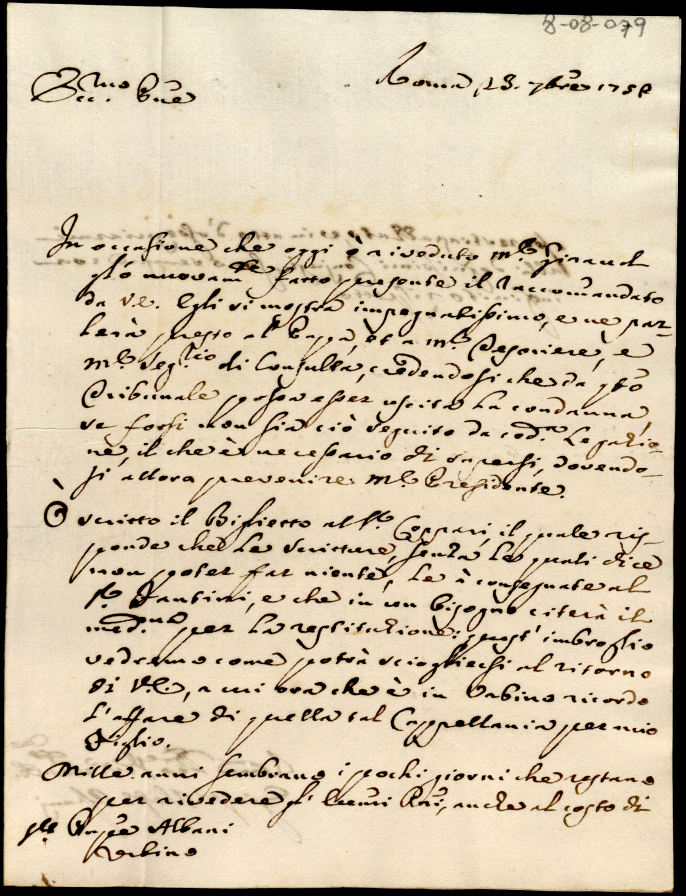 8-08-079
Ecc.mo Pñe Roma 23. 7bre 1758
In occasione che oggi ò riveduto m.r Giraud
gl'ò nuovam.te fatto presente il raccomandato
da V.E. Egli si mostra impegnatissimo, e ne par-
lerà presto al Papa, et a m.r Tesoriere, e
m.r Seg.rio di Consulta, credendosi che da q̃to
Tribunale possa esser uscita la condanna,
se forsi non sia ciò seguito da cod.a Legazio-
ne, il che è necessario di sapersi, dovendo-
si allora prevenire m.r Presidente.
Ò scritto il Biglietto al S.r Coppari, il quale ris-
ponde che le scritture, senza le quali dice
non poter far niente, le à consegnate al
S.r Fantini, e che in un bisogno citerà il
med.mo per la restituzione: quest'imbroglio
vedremo come potrà sciogliersi al ritorno
di V.E., a cui ora che è in Urbino ricordo
l'affare di quella tal Cappellania per mio
Figlio.
Mille anni sembrano i pochi giorni che restano
per rivedere gl' Ecc̃mi Pñi, anche al costo di
Pñpe Albani
Urbino